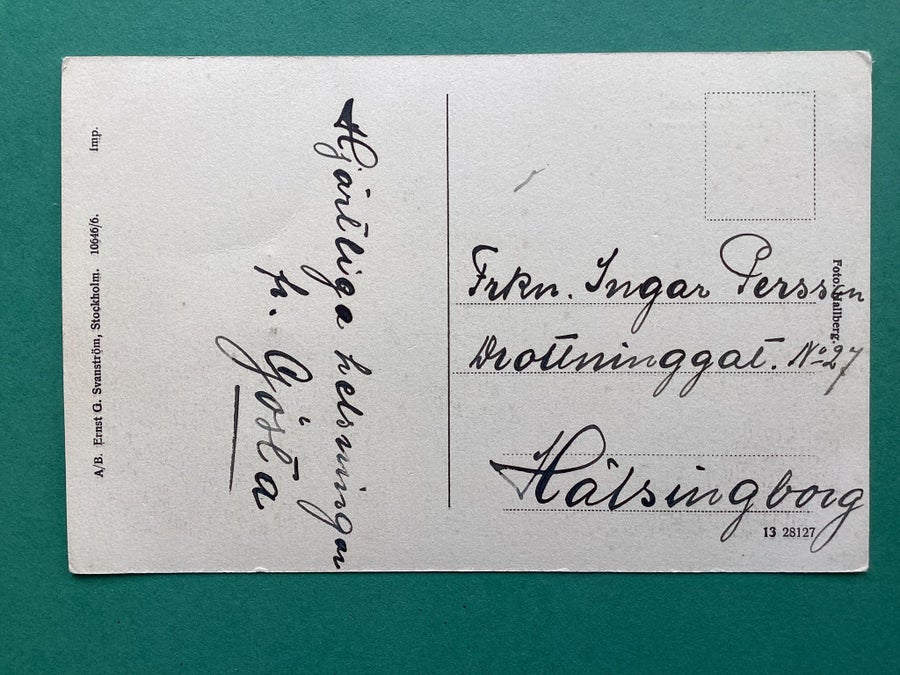 Hjärtliga helsningar
fr. Gösta
Frkn. Ingar Persson
Drottninggat. No 27
Hälsingborg
Foto. Hallberg.
13 28127
A/B. Ernst G. Svanström, Stockholm. 10646/6. Imp.